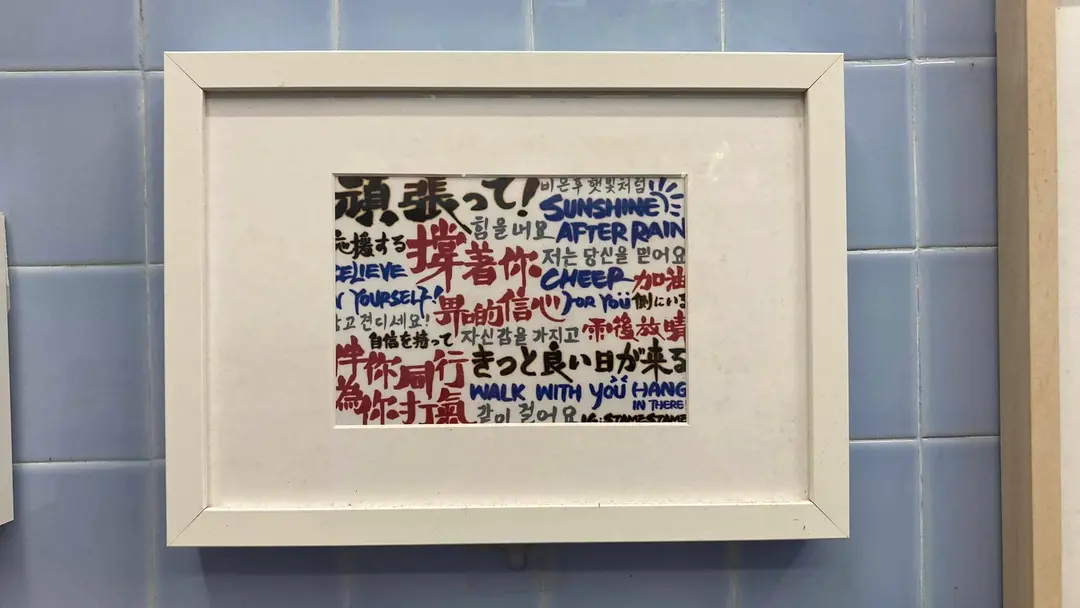 頑張って!
비온후 햇빛처럼
SUNSHINE
AFTER RAIN
힘을 내요
応援する
撐著你
저는 당신을 믿어요
BELIEVE
IN YOURSELF!
CHEER
FOR YOU
加油
側にいる
畀啲信心
참고 견디세요!
自信を持って
자신감을 가지고
雨後放晴
伴你同行
きっと良い日が来る
為你打氣
WALK WITH YOU
HANG
IN THERE
같이 걸어요
IG:STAMESTAME